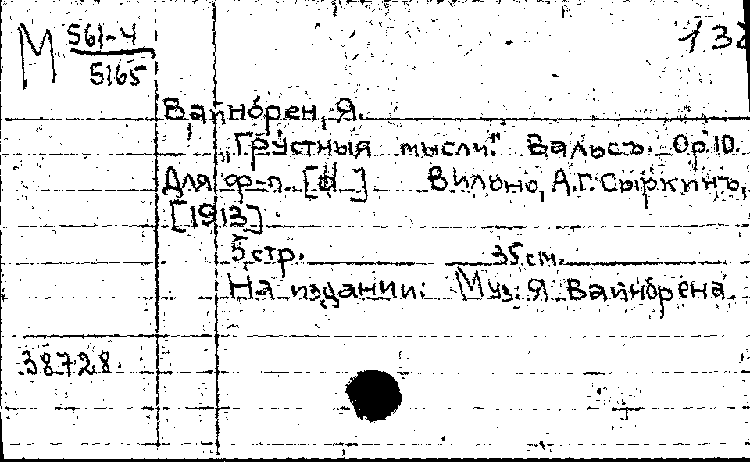 М 561-4
5165
132
Вайнбрен, Я.
„Грустныя мысли". Вальсъ. Op 10.
Для ф-п. [d]. Вильно, А.Г. Сыркинъ,
[1913].
5 стр. 35 см.
На издании: Муз. Я Вайнбрена.
38728.